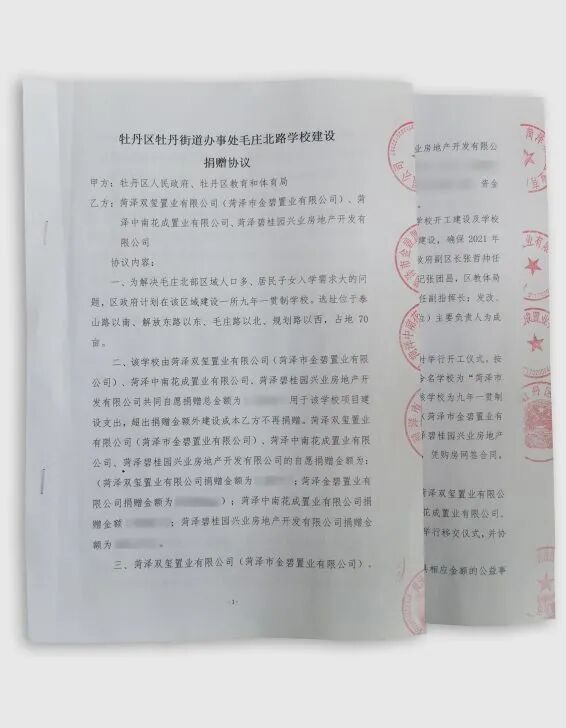 牡丹区牡丹街道办事处毛庄北路学校建设
捐赠协议
甲方：牡丹区人民政府、牡丹区教育和体育局
乙方：菏泽双玺置业有限公司（菏泽市金碧置业有限公司）、菏
泽中南花成置业有限公司、菏泽碧桂园兴业房地产开发有
限公司
协议内容：
一、为解决毛庄北部区域人口多、居民子女入学需求大的问
题，区政府计划在该区域建设一所九年一贯制学校。选址位于泰
山路以南、解放东路以东、毛庄路以北、规划路以西，占地 70
亩。
二、该学校由菏泽双玺置业有限公司（菏泽市金碧置业有限
公司）、菏泽中南花成置业有限公司、菏泽碧桂园兴业房地产开
发有限公司共同自愿捐赠总金额为 用于该学校项目建
设支出，超出捐赠金额外建设成本乙方不再捐赠。菏泽双玺置业
有限公司（菏泽市金碧置业有限公司）、菏泽中南花成置业有限公
司、菏泽碧桂园兴业房地产开发有限公司的自愿捐赠金额为：
（菏泽双玺置业有限公司捐赠金额为 ；菏泽金碧置业有
限公司捐赠金额为 ）；菏泽中南花成置业有限公司捐
赠金额 ；菏泽碧桂园兴业房地产开发有限公司捐赠金
额为 。
三、菏泽双玺置业有限公司（菏泽市金碧置业有限公司）、
-1-
业房地产开发有限公
资金
学校开工建设及学校
建设，确保 2021 年
政府副区长张哲帅任
记张团昌，区教体局
任副指挥长；发改、
位）主要负责人为成
时举行开工仪式，按
命名学校为“菏泽市
该学校为九年一贯制
（菏泽市金碧置业有
泽碧桂园兴业房地产
，凭购房网签合同。
菏泽双玺置业有限公
花成置业有限公司、
举行移交仪式，并协
相应金额的公益事